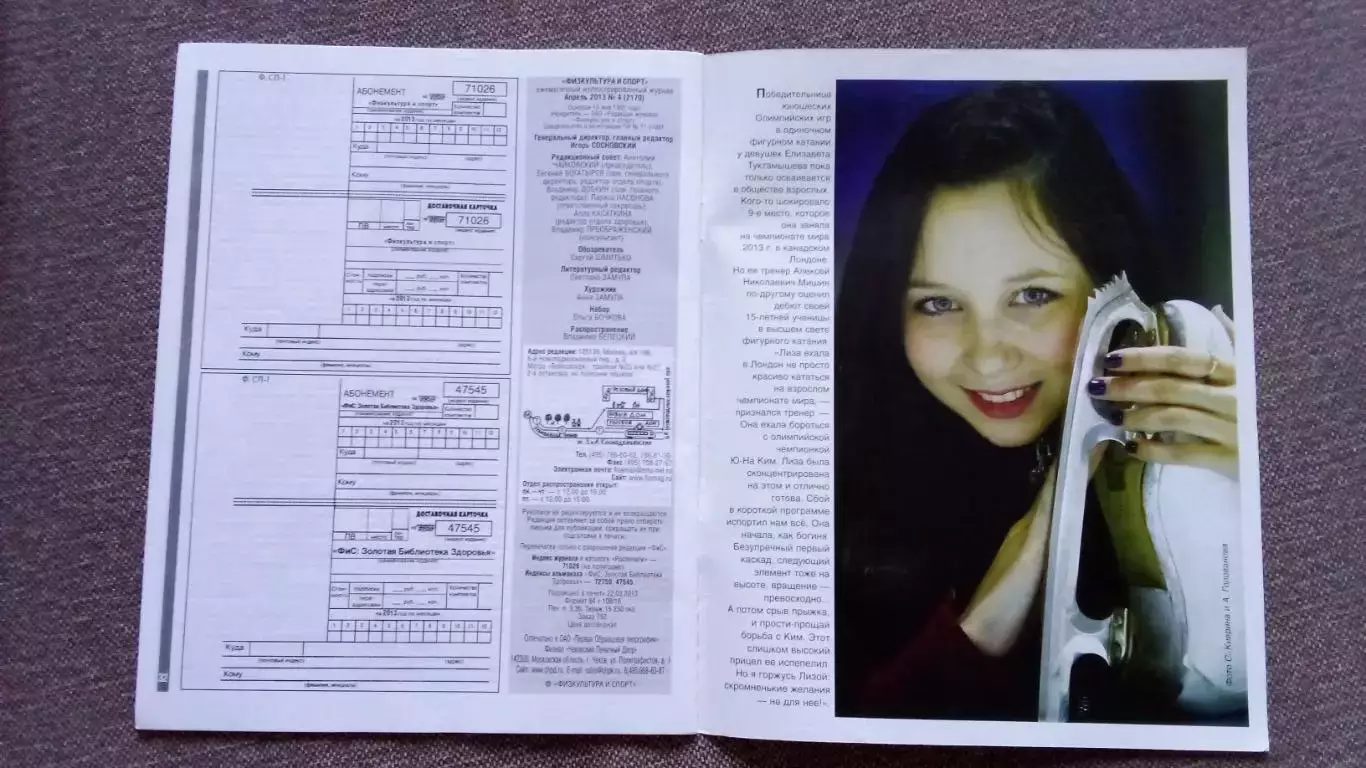 Ф. СП-1
АБОНЕМЕНТ
71026
(индекс издания)
«Физкультура и спорт»
(наименование издания)
Количество
комплектов
на 2013 год по месяцам
1 2 3 4 5 6 7 8 9 10 11 12
Куда
(почтовый индекс) (адрес)
Кому
(фамилия, инициалы)
ДОСТАВОЧНАЯ КАРТОЧКА
71026
(индекс издания)
ПВ место
«Физкультура и спорт»
(наименование издания)
Стои-
мость
подписки руб. коп.
пере-
адресовки руб. коп.
Количество
комплектов
на 2013 год по месяцам
1 2 3 4 5 6 7 8 9 10 11 12
Куда
(почтовый индекс) (адрес)
Кому
(фамилия, инициалы)
Ф. СП-1
АБОНЕМЕНТ
47545
(индекс издания)
«ФиС: Золотая Библиотека Здоровья»
(наименование издания)
Количество
комплектов
на 2013 год по месяцам
1 2 3 4 5 6 7 8 9 10 11 12
Куда
(почтовый индекс) (адрес)
Кому
(фамилия, инициалы)
ДОСТАВОЧНАЯ КАРТОЧКА
47545
(индекс издания)
ПВ место
«ФиС: Золотая Библиотека Здоровья»
(наименование издания)
Стои-
мость
подписки руб. коп.
пере-
адресовки руб. коп.
Количество
комплектов
на 2013 год по месяцам
1 2 3 4 5 6 7 8 9 10 11 12
Куда
(почтовый индекс) (адрес)
Кому
(фамилия, инициалы)
«ФИЗКУЛЬТУРА И СПОРТ»
ежемесячный иллюстрированный журнал
Апрель 2013 № 4 (2170)
Генеральный директор, главный редактор
Игорь СОСНОВСКИЙ
Редакционный совет: Анатолий
ЧАЙКОВСКИЙ (председатель),
Евгений БОГАТЫРЕВ (зам. генерального
директора, редактор отдела спорта),
Владимир ДОБКИН (зам. главного
редактора), Лариса НАСОНОВА
(ответственный секретарь),
Алла КАСАТКИНА
(редактор отдела здоровья),
Владимир ПРЕОБРАЖЕНСКИЙ
(консультант)
Обозреватель
Сергей ШАЧИТЬКО
Литературный редактор
Светлана ЗАМУЛА
Художник
Анна ЗАМУЛА
Набор
Ольга БОЧКОВА
Распространение
Владимир БЕЛЕЦКИЙ
Адрес редакции:
Тел. (495)
Факс (495)
Электронная почта:
Сайт: www.fismag.ru
Отдел распространения открыт:
пн. – чт. — с 12.00 до 16.00
пт. — с 10.00 до 15.00
Рукописи не рецензируются и не возвращаются.
Редакция оставляет за собой право отбирать
письма для публикации, сокращать их при
подготовке к печати.
Перепечатка только с разрешения редакции «ФиС»
Индекс журнала в каталоге «Роспечати» —
71026 (на полугодие)
Индексы альманаха «ФиС: Золотая Библиотека
Здоровья» — 72759, 47545
Подписано в печать 22.03.2013
Заказ 762
Цена договорная
Отпечатано в ОАО «Первая Образцовая типография»
Филиал «Чеховский Печатный Двор»
142300, Московская область, г. Чехов, ул. Полиграфистов, д. 1
© «ФИЗКУЛЬТУРА И СПОРТ»
Победительница
юношеских
Олимпийских игр
в одиночном
фигурном катании
у девушек Елизавета
Туктамышева пока
только осваивается
в обществе взрослых.
Кого-то шокировало
9-е место, которое
она заняла
на чемпионате мира
2013 г. в канадском
Лондоне.
Но ее тренер Алексей
Николаевич Мишин
по-другому оценил
дебют своей
15-летней ученицы
в высшем свете
фигурного катания.
«Лиза ехала
в Лондон не просто
красиво кататься
на взрослом
чемпионате мира, —
признался тренер. —
Она ехала бороться
с олимпийской
чемпионкой
Ю-На Ким. Лиза была
сконцентрирована
на этом и отлично
готова. Сбой
в короткой программе
испортил нам всё. Она
начала, как богиня.
Безупречный первый
каскад, следующий
элемент тоже на
высоте, вращение —
превосходно...
А потом срыв прыжка,
и прости-прощай
борьба с Ким. Этот
слишком высокий
прицел ее испепелил.
Но я горжусь Лизой:
скромненькие желания
— не для нее!».
Фото С. Киврина и А. Голованова